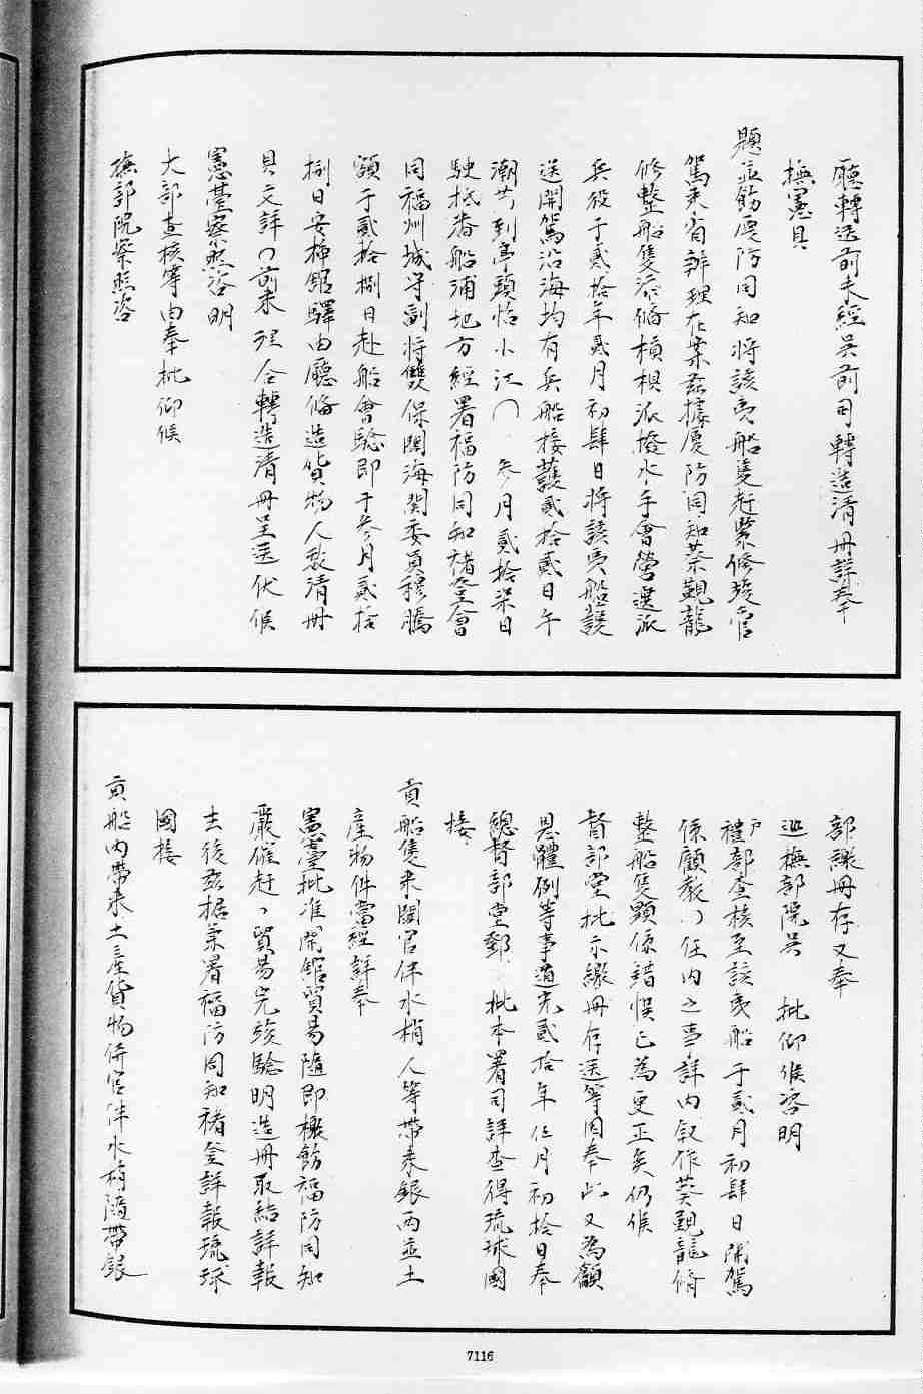 廳轉送前來經吳前司轉造清冊詳奉
撫憲具
題並飭厦防同知將該貢船隻赶緊修竣官
駕來省辦理在案茲據厦防同知蔡觀龍
修整船隻添備槓椇派撥水手會營選派
兵役于貳拾年貳月初肆日將該貢船護
送開駕沿海均有兵船接護貳拾貳日午
潮廿到亭頭怡小江 叁月貳拾柒日
駛抵番船浦地方經署福防同知褚登會
同福州城守副將雙保閩海關委員穆騰
額于貳拾捌日赴船會驗即于叁月貳拾
捌日安揷舘驛由廳俻造貨物人数清冊
具文詳 前來理合轉造清冊呈送伏候
憲臺察照咨明
大部查核等由奉批仰候
撫部院察照咨
部議冊存又奉
巡撫部院吳 批仰候咨明
戶禮部查核至該貢船于貳月初肆日開駕
係顧教 任内之事詳内叙作蔡觀龍脩
整船隻顕係錯悞已為更正矣仍候
督部堂批示繳冊存送等因奉此又為籲
恩體例等事道光貳拾年伍月初拾日奉
總督部堂鄧 批本署司詳查得琉球國
接
貢船隻来閩官伴水梢人等帶来銀両並土
產物件當經詳奉
憲臺批准開舘貿易隨即檄飭福防同知
嚴催赶 貿易完竣驗明造冊取結詳報
去後茲据兼署福防同知褚登詳報琉球
國接
貢船内帶来土產貨物併官伴水梢隨帶銀
7116